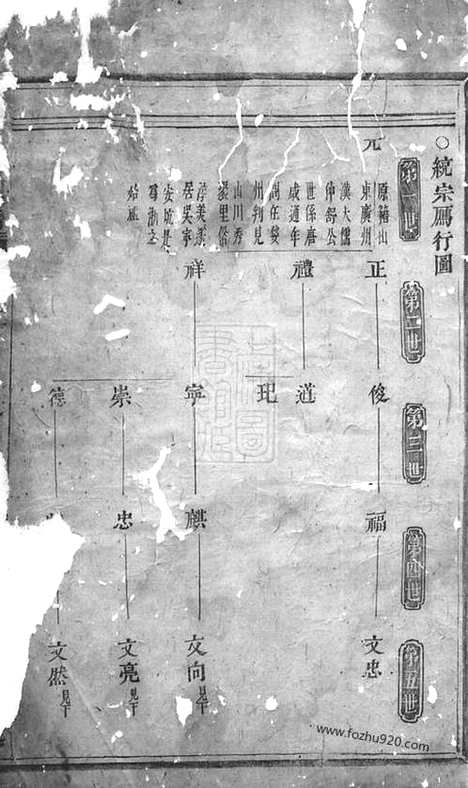 ○統宗鴈行圖
第一世
第二世
第三世
第四世
第五世
元
原籍山
東廣州
漢大儒
仲舒公
世係唐
咸通年
間任婺
州判見
山川秀
麗里俗
淳美遂
居吳寧
安城是
為浙之
始祖
正
禮
祥
俊
道
玘
寧
崇
德
福
麒
忠
文忠
文向見下
文亮見下
文然見下
www.fozhu920.com